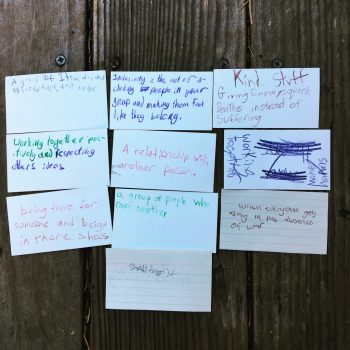 of Items
and color.
Inclusivity is the act of in-
cluding people in your
and making them feel
like they belong.
Kind Stuff
Giving Enemys quick
Deaths instead of
Suffering
Working together pos-
itively and respecting
others ideas
A relationship with
another person.
Working
together
being there for
someone and being
in there shoes
a group of people who
together
when everyone gets
along in the absence
of war